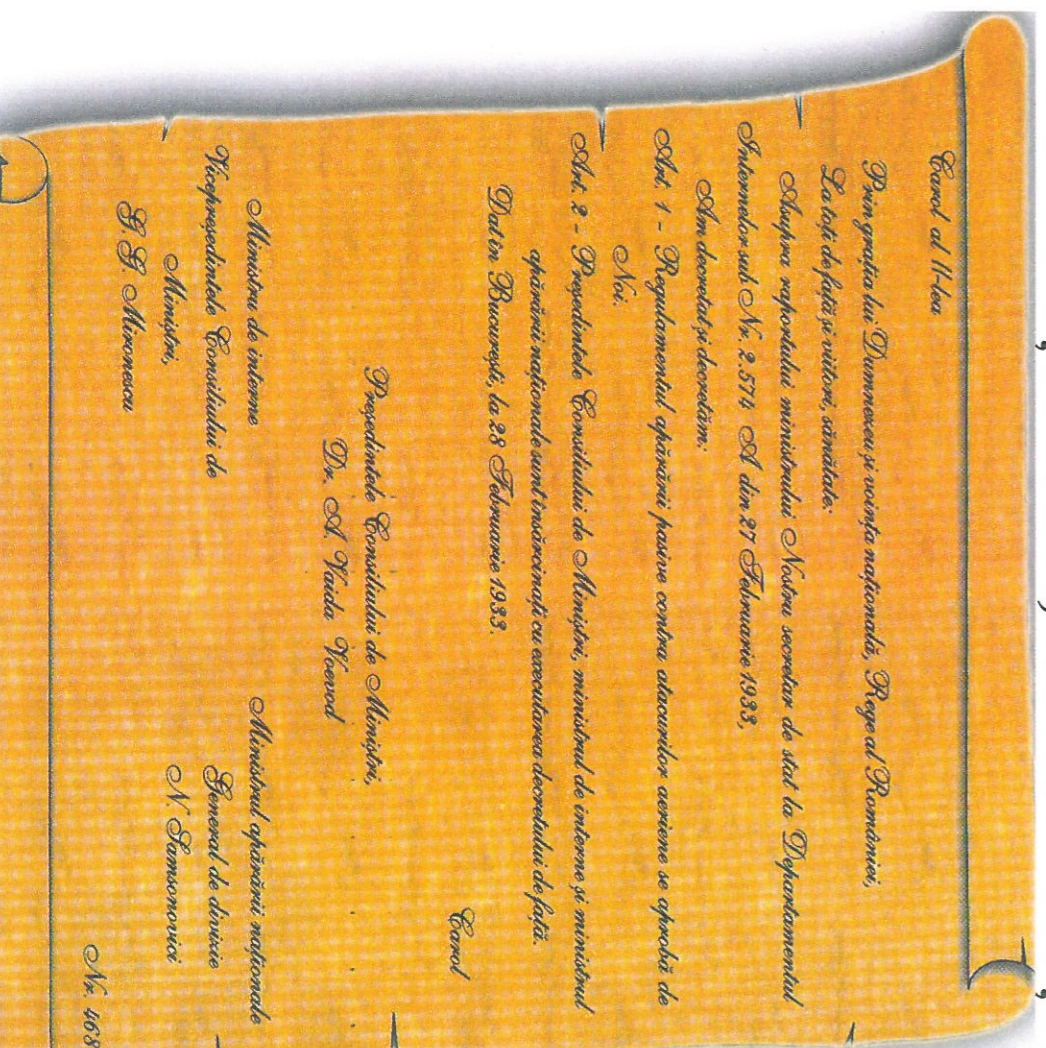 Carol al II-lea
Prin grația lui Dumnezeu și voința națională, Rege al României,
La toți de față și viitori, sănătate:
Asupra raportului ministrului Nostru secretar de stat la Departamentul
Internelor sub Nr. 2.574 A din 27 Februarie 1933,
Am decretat și decretăm:
Art. 1 - Regulamentul apărării pasive contra atacurilor aeriene se aprobă de
Noi.
Art. 2 - Președintele Consiliului de Miniștri, ministrul de interne și ministrul
apărării naționale sunt însărcinați cu executarea decretului de față.
Dat în București, la 28 Februarie 1933.
Carol
Președintele Consiliului de Miniștri,
Dr. A. Vaida Voevod
Ministru de interne
Vicepreședintele Consiliului de
Miniștri,
G.G. Mironescu
Ministrul apărării naționale
General de divizie
N. Samsonovici
Nr. 468